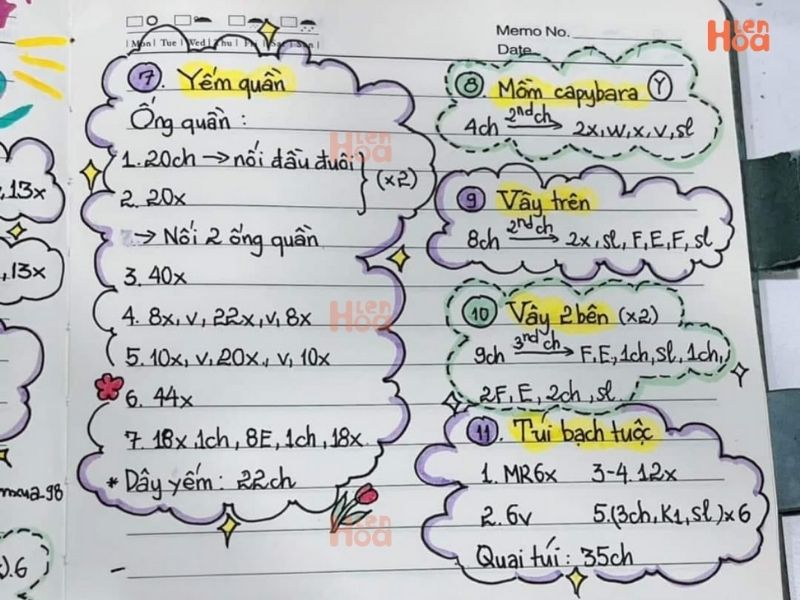 Memo No.
Date
Len Hoa
| Mon | Tue | Wed | Thu | Fri | Sat | Sun |
,13x
,13x
moua_98
).6
7. Yếm quần
Ống quần :
1. 20ch → nối đầu đuôi } (x2)
2. 20x
→ Nối 2 ống quần
3. 40x
4. 8x, v, 22x, v, 8x
5. 10x, v, 20x, v, 10x
6. 44x
7. 18x, 1ch, 8E, 1ch, 18x
* Dây yếm : 22ch
8. Mồm capybara Y
4ch 2nd ch → 2x, w, x, v, sl
9 Vây trên
8ch 2nd ch → 2x, sl, F, E, F, sl
10 Vây 2 bên (x2)
9ch 3nd ch → F, E, 1ch, sl, 1ch,
2F, E, 2ch, sl
11. Túi bạch tuộc
1. MR6x 3-4. 12x
2. 6v 5. (3ch, K1, sl) x 6
Quai túi : 35ch
Len Hoa
Len Hoa
Len Hoa